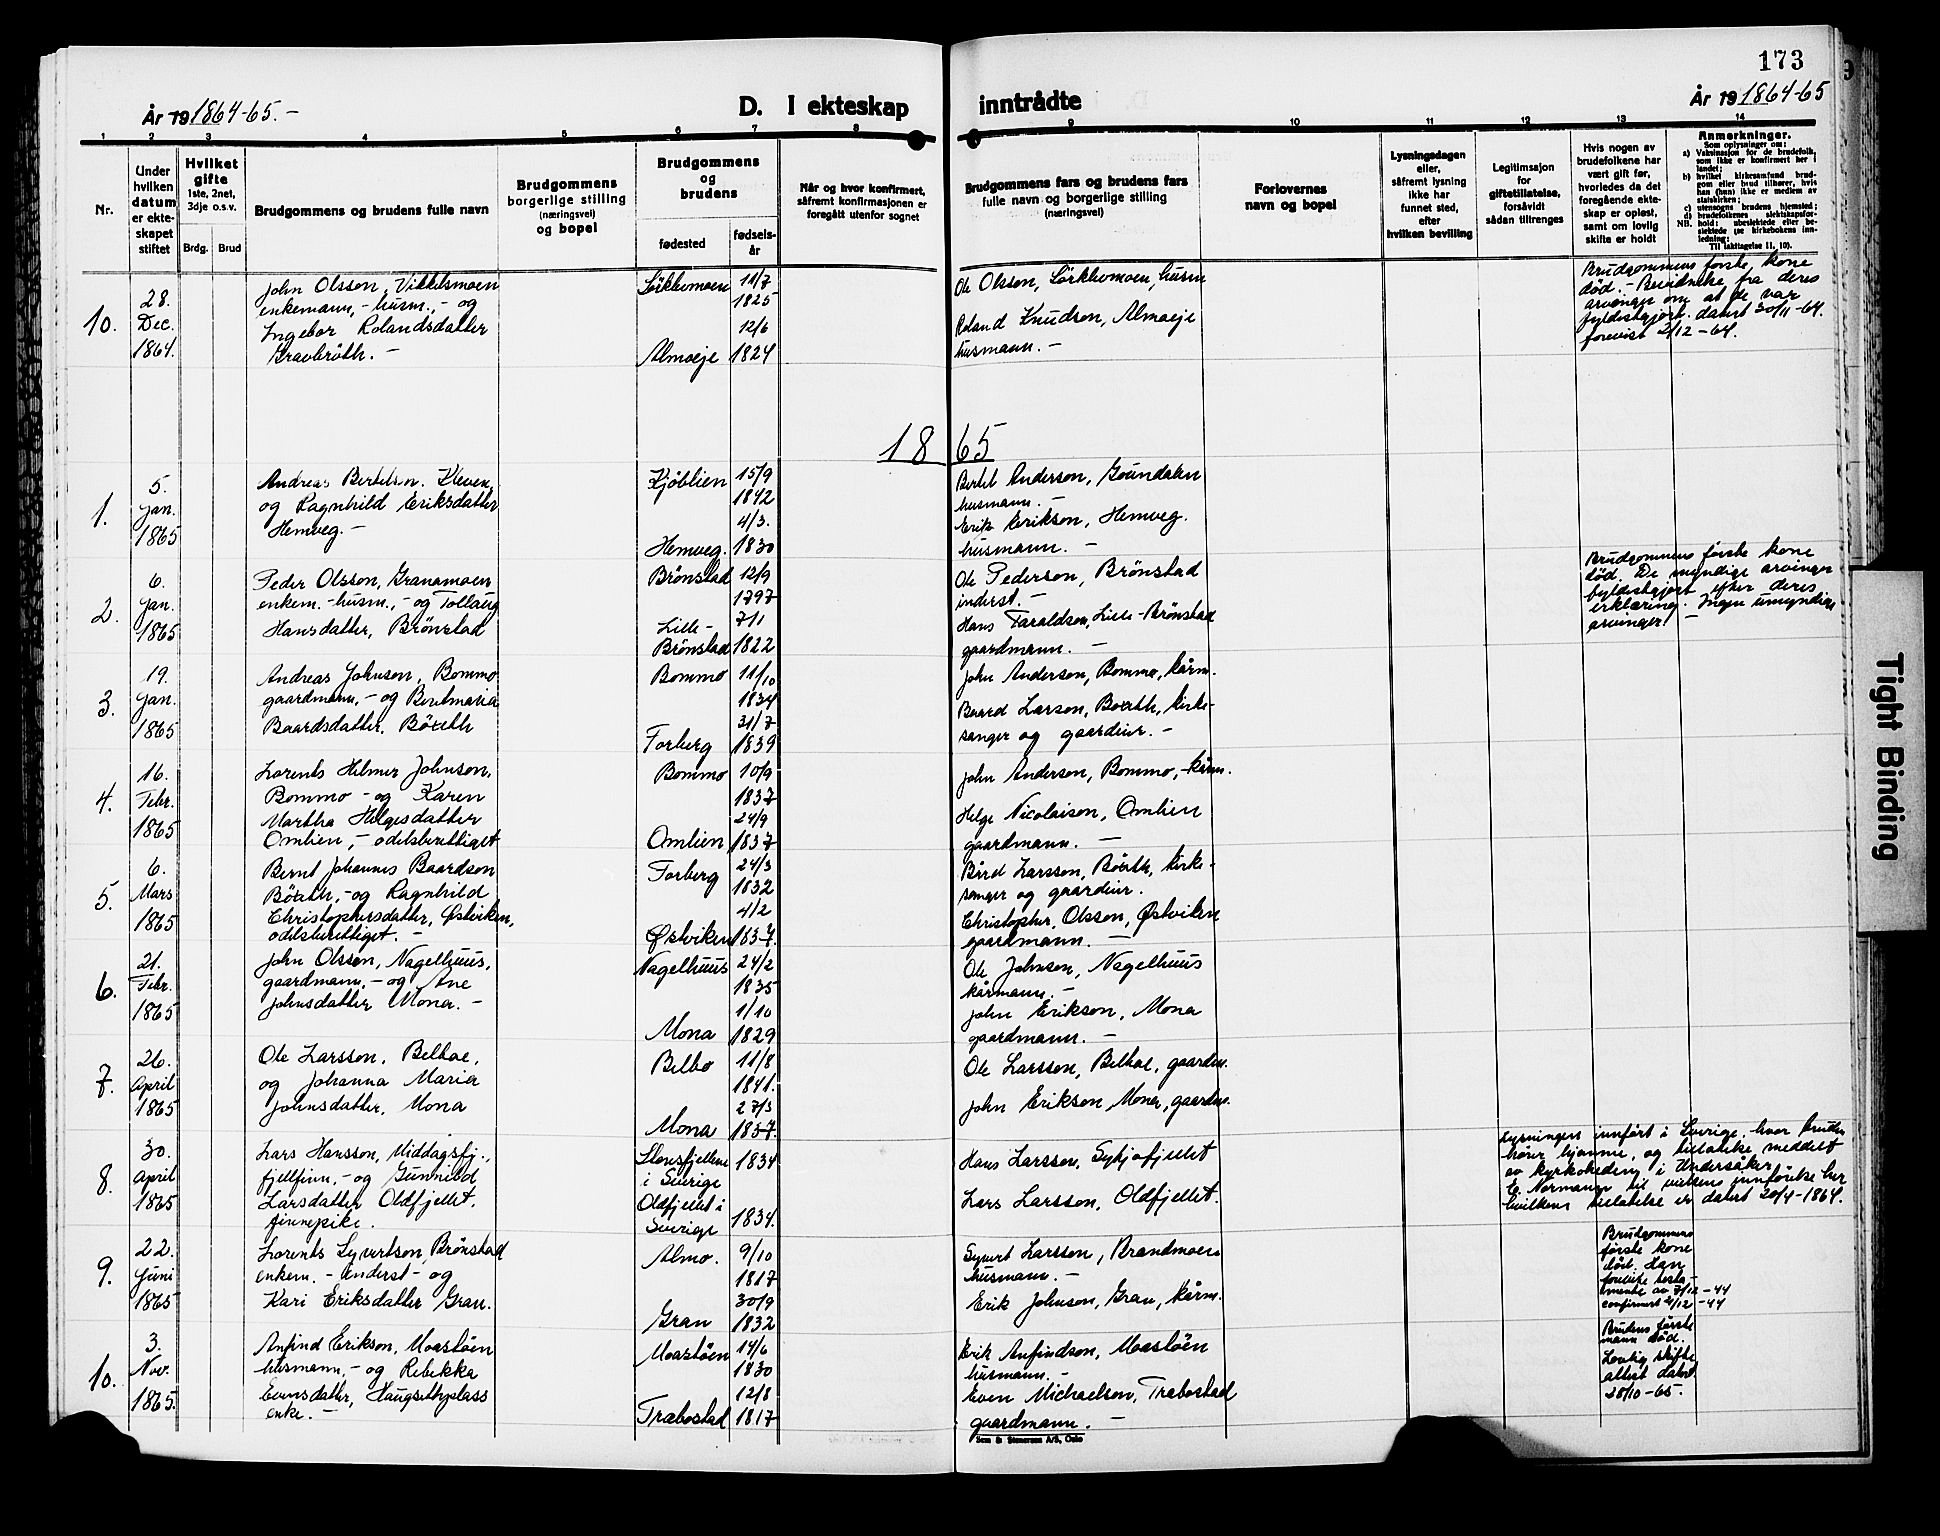 173
År 19 1864-65.-
D. I ekteskap inntrådte
År 19 1864-65
1 2 3 4 5 6 7 8 9 10 11 12 13 14
Nr.
Under
hvilken
datum
er ekte-
skapet
stiftet
Hvilket
gifte
1ste, 2net,
3dje o.s.v.
Brdg. Brud
Brudgommens og brudens fulle navn
Brudgommens
borgerlige stilling
(næringsvei)
og bopel
Brudgommens
og
brudens
fødested
fødsels-
år
Når og hvor konfirmert,
såfremt konfirmasjonen er
foregått utenfor sognet
Brudgommens fars og brudens fars
fulle navn og borgerlige stilling
(næringsvei)
Forlovernes
navn og bopel
Lysningsdagen
eller,
såfremt lysning
ikke har
funnet sted,
efter
hvilken bevilling
Legitimasjon
for
giftetillatelse,
forsåvidt
sådan tiltrenges
Hvis nogen av
brudefolkene har
vært gift før,
hvorledes da det
foregående ekte-
skap er opløst,
samt om lovlig
skifte er holdt
Anmerkninger.
Som oplysninger om:
a) Vaksinasjon for de brudefolk,
som ikke er konfirmert her i
landet;
b) hvilket kirkesamfund brud-
gom eller brud tilhører, hvis
han (hun) ikke er medlem av
statskirken;
c) utensogns brudens hjemsted;
d) brudefolkenes slektskapsfor-
NB. hold: ubeslektede eller be-
slektede (se kirkebokens inn-
ledning:
Til iakttagelse 11, 10).
10.
28.
Dec.
1864.
John Olsson, Vikkelsmoen
enkemann, - husm., - og
Ingebor Rolandsdatter
Gravbröth. -
Lökkemoen 11/7
1825
12/6
Almoeje 1824
Ole Olsson, Lörkkemoen, husm
Roland Knudson, Almoeje
husmann. -
Brudgommens første kone
død. - Bevidnelse fra deres
arvinger om at de var
fyldestgjort. datert 30/11-64.
forevist 2/12-64.
1865
1.
5.
Jan.
1865
Andreas Bertelsen. Kleven,
og Ragnhild Eriksdatter
Hemveg. -
Kjöblien 15/9
1842
4/3.
Hemveg. 1830
Bertel Anderson, Goundalen
husmann. -
Erik Erikson, Hemveg.
husmann. -
2.
6.
Jan.
1865
Peder Olsson, Granamoen
enkem. - husm., - og Tollaug
Hansdatter, Brönstad
Brönstad 12/9
1797
7/1
Lille-
Brönstad 1822
Ole Pederson, Brönstad
inderst. -
Hans Taraldson, Lille-Brönstad
gaardmann. -
Brudgommens første kone
død. De myndige arvinger
fyldestgjort efter deres
erklæring. Ingen umyndige
arvinger. -
3.
19.
Jan.
1865
Andreas Johnson, Bommo
gaardmann, - og Beritmaria
Baardsdatter, Böveth
Bommo 11/10
1834
31/7
Forberg 1839
John Anderson, Bommo, kårm.
Baard Larson, kirke-
sanger og gaardeier. -
4.
16.
Febr.
1865
Lorents Hilmer Johnson,
Bommo - og Karen
Martha Helgesdatter
Omlien, - odelsberettiget
Bommo 10/9
1837
24/9
Omlien 1837
John Anderson, Bommo, - kårm.
Helge Nicolaison, Omlien
gaardmann. -
5.
6.
Mars
1865
Bernt Johannes Baardson
og Ragnhild
Christophersdatter, Østviken,
odelsberettiget. -
Forberg 24/3
1832
4/2
Østviken 1837.
Bård Larsson, kirke-
sanger og gaardeier.
Christopher Olsson, Østviken
gaardmann. -
6.
21.
Febr.
1865
John Olsson, Nagelhuus,
gaardmann, - og Ane
Johnsdatter Mona. -
Nagelhuus 24/2
1835
1/10
Mona 1829
Ole Johnson, Nagelhuus
kårmann. -
John Erikson, Mona
gaardmann. -
7.
26.
April
1865
Ole Larsson, Belboe,
og Johanna Maria
Johnsdatter, Mona
Belbo 11/8
1841.
27/3
Mona 1837.
Ole Larsson, Belboe, gaardm.
John Erikson, Mona, gaardm.
8.
30.
April
1865
Lars Hansson, Middagsfj.,
fjellfinn, - og Gunnild
Larsdatter Oldfjellet,
finnepike.
1834
i Sverige
Oldfjellet i
Sverige 1834.
Hans Larsson,
Lars Larsson, Oldfjellet.
Lysningen innført i Sverige, hvor bruden
hører hjemme, og tillatelse meddelt
av kyrkoherden i Undersåker
E. Norman til vielsens innførelse her
hvilken tillatelse er datert 20/4-1864.
9.
22.
Juni
1865
Lorents Syvertson, Brönstad
enkem. - inderst - og
Kari Eriksdatter Gran.
Almo. 9/10
1817
30/9
Gran 1832
Syvert Larsson, Brandmoen
husmann. -
Erik Johnson, Gran, kårm.
Brudgommens
første kone
død. Han
foreviste testa-
mente av 7/12-44
confirmert 21/12-44
10.
3.
Nov.
1865.
Anfind Erikson, Moasløen
husmann, - og Rebekka
Evensdatter, Haugsethplass
enke. -
Moasløen 14/6
1830
12/8
Træbostad 1817
Erik Anfindson, Moasløen
husmann. -
Even Michaelson, Træbostad
gaardmann. -
Brudens første
mann død.
Lovlig skifte
attest datert
28/10-65.
Sem & Stenersen A/S, Oslo
Tight Binding